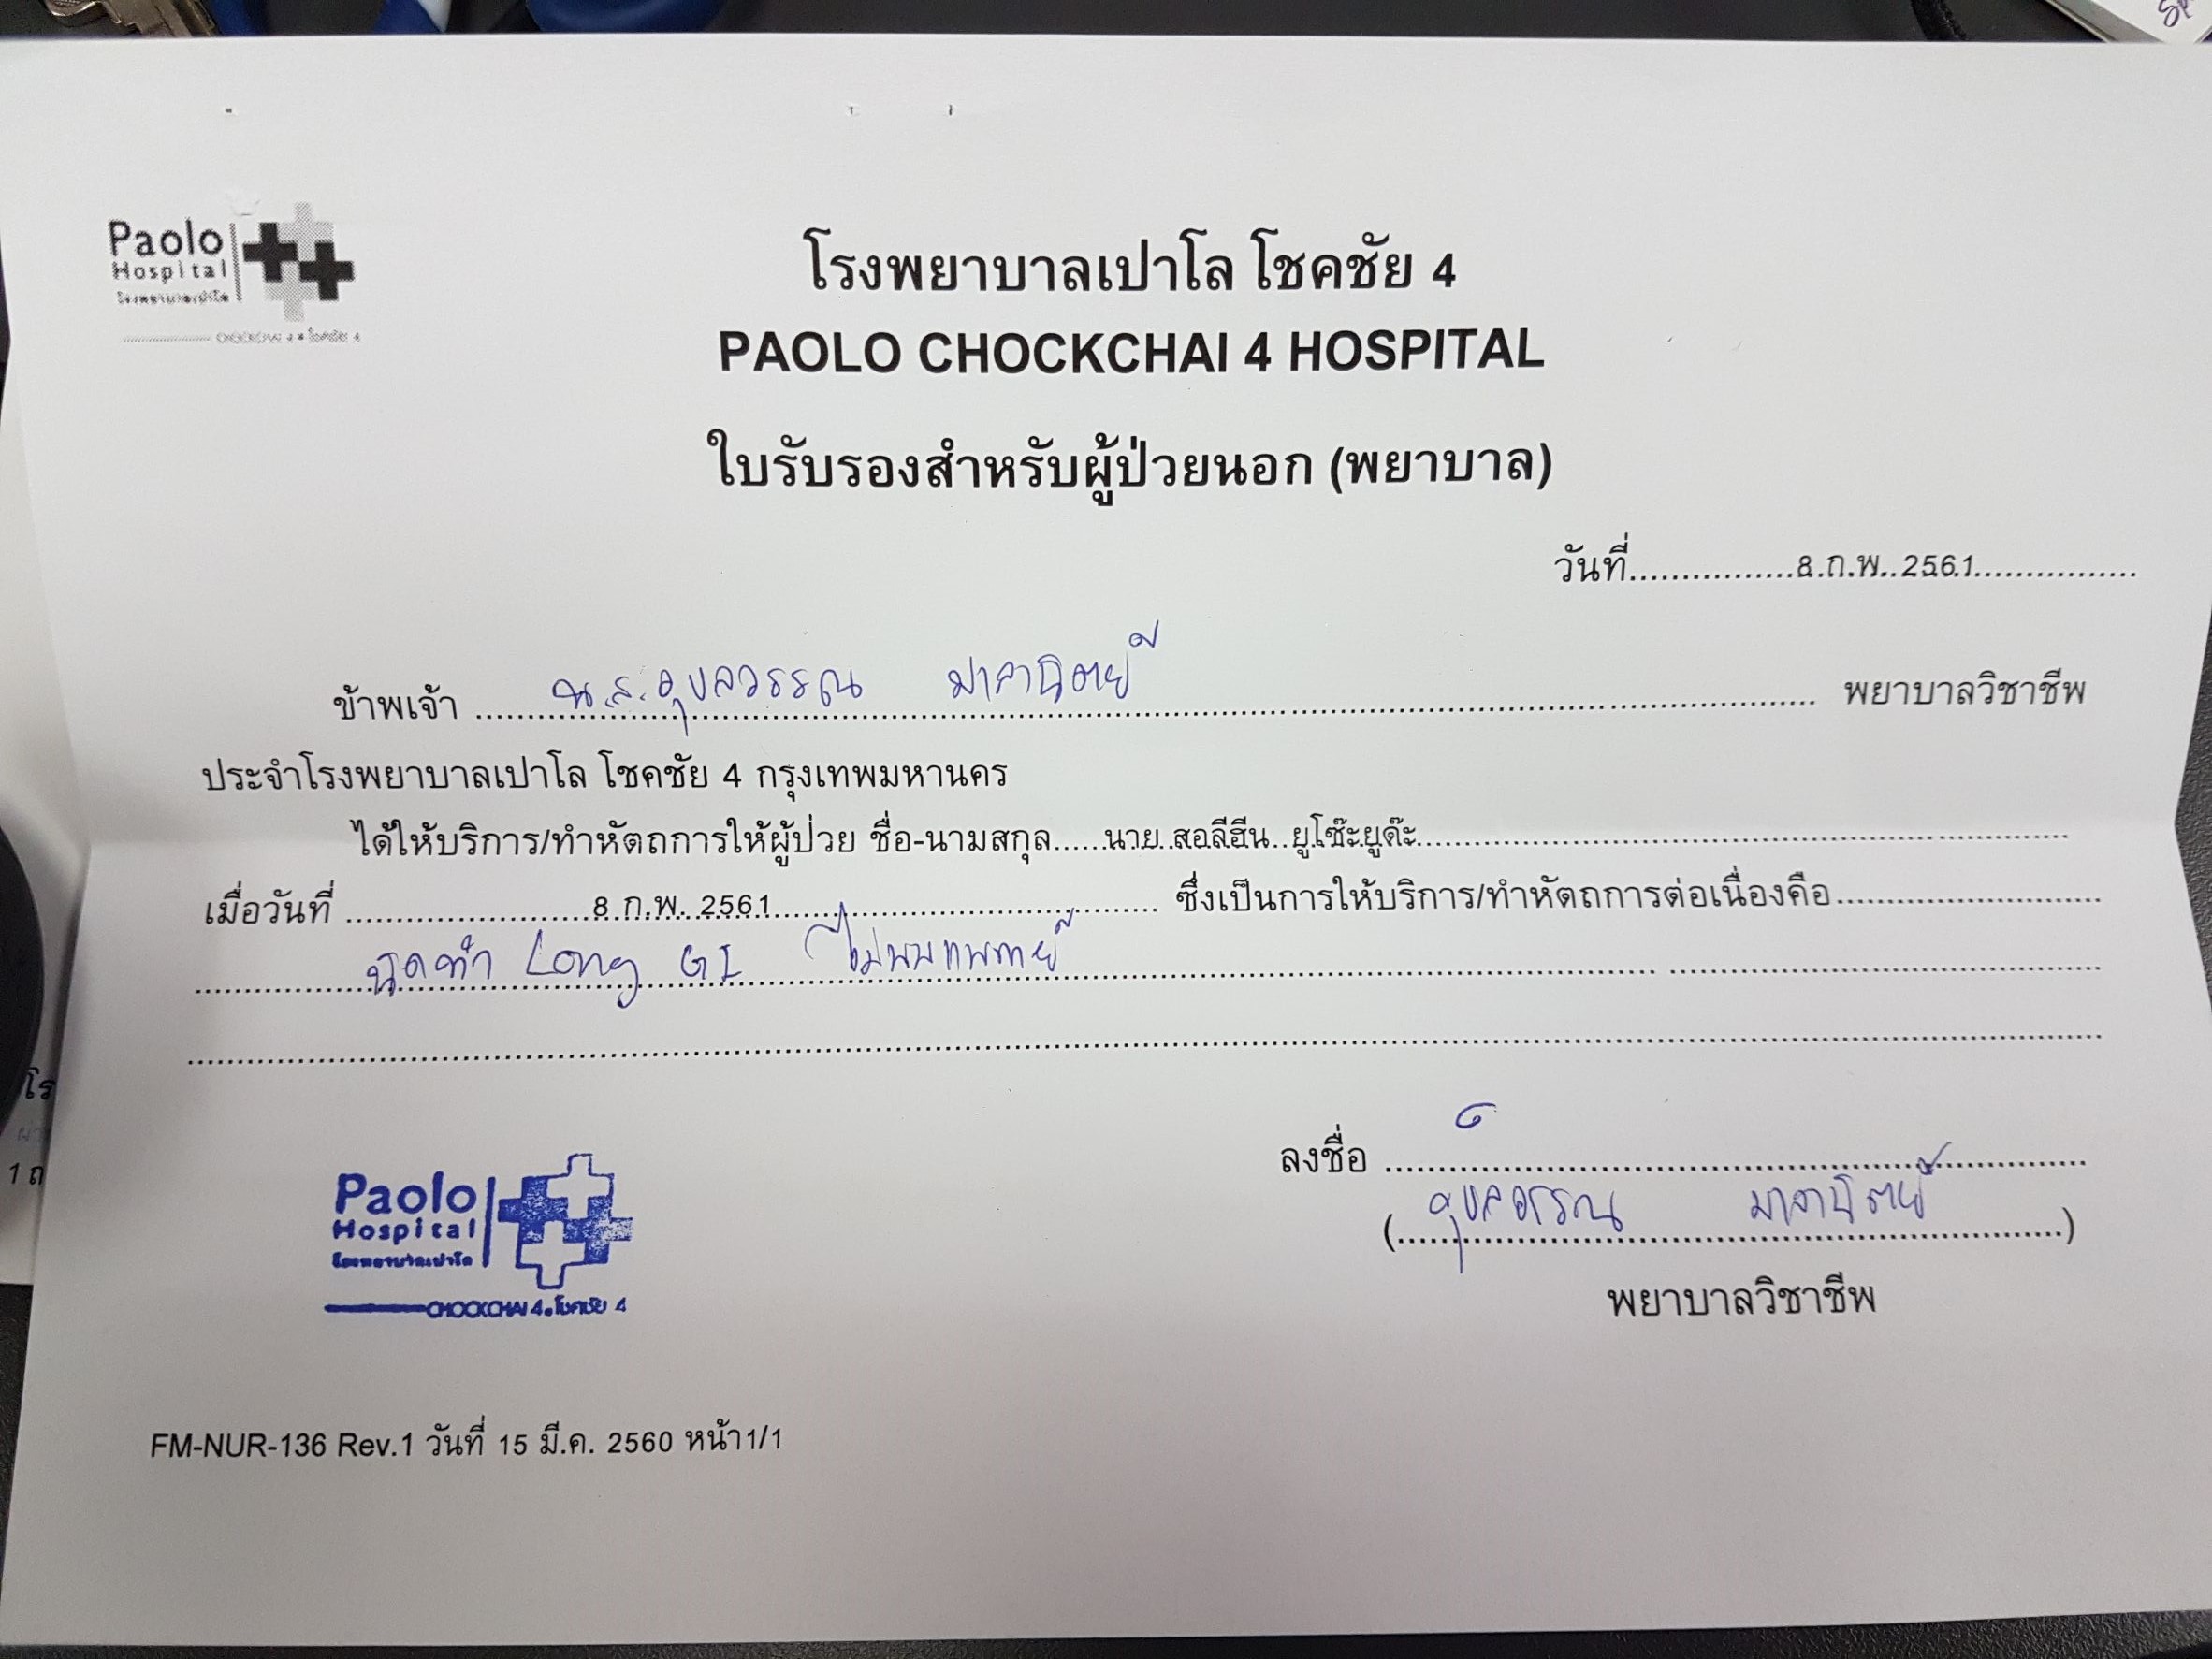 Paolo
Hospital
โรงพยาบาลเปาโล
CHOCKCHAI 4 • โชคชัย 4
โรงพยาบาลเปาโล โชคชัย 4
PAOLO CHOCKCHAI 4 HOSPITAL
ใบรับรองสำหรับผู้ป่วยนอก (พยาบาล)
วันที่ 8 ก.พ. 2561
ข้าพเจ้า น.ส.อุบลวรรณ มาลานิตย์ พยาบาลวิชาชีพ
ประจำโรงพยาบาลเปาโล โชคชัย 4 กรุงเทพมหานคร
ได้ให้บริการ/ทำหัตถการให้ผู้ป่วย ชื่อ-นามสกุล นาย สอลีฮีน ยูโซ๊ะยูด๊ะ
เมื่อวันที่ 8 ก.พ. 2561 ซึ่งเป็นการให้บริการ/ทำหัตถการต่อเนื่องคือ
นัดทำ Long GI ไม่พบแพทย์
ลงชื่อ
(อุบลวรรณ มาลานิตย์)
พยาบาลวิชาชีพ
Paolo
Hospital
โรงพยาบาลเปาโล
CHOCKCHAI 4 • โชคชัย 4
FM-NUR-136 Rev.1 วันที่ 15 มี.ค. 2560 หน้า1/1